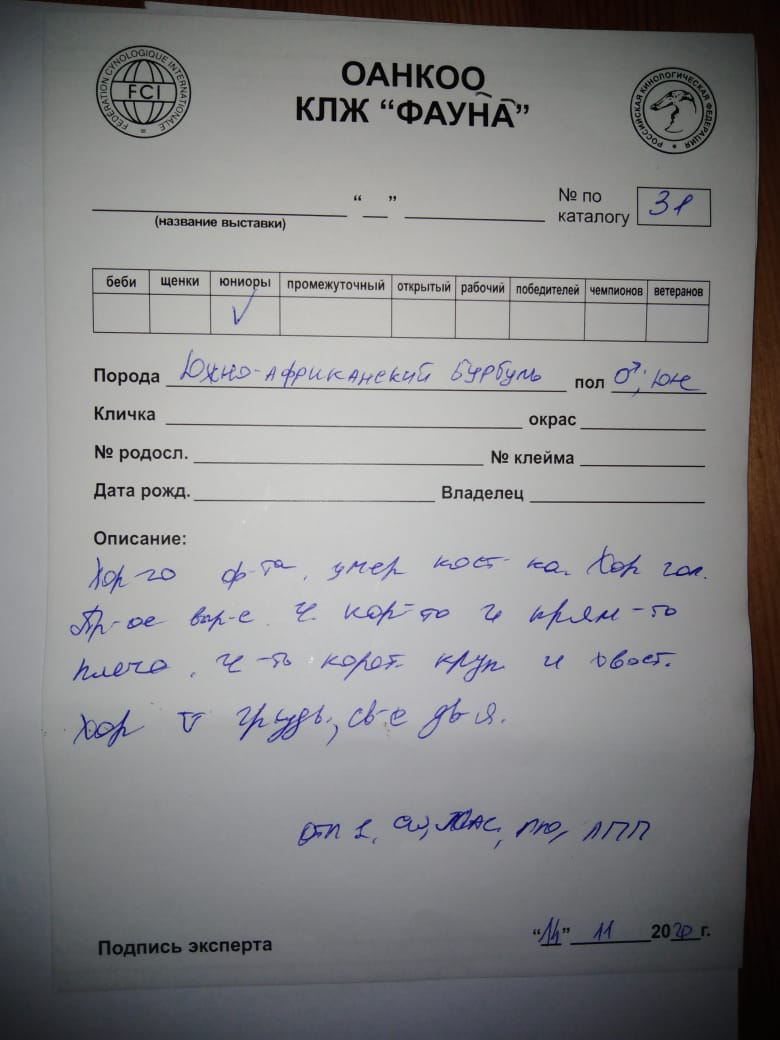 FEDERATION CYNOLOGIQUE INTERNATIONALE
FCI
ОАНКОО
КЛЖ “ФАУНА”
РОССИЙСКАЯ КИНОЛОГИЧЕСКАЯ ФЕДЕРАЦИЯ
“ ”
(название выставки)
№ по каталогу 31
беби щенки юниоры промежуточный открытый рабочий победителей чемпионов ветеранов
Порода Южно-африканский бурбуль пол ♂, юн
Кличка окрас
№ родосл. № клейма
Дата рожд. Владелец
Описание:
Хор-го ф-та, умер кост-ка. Хор гол.
Пр-ое выр-е. Ч. кор-то и прям-то
плечо. Ч-то корот. круп и хвост.
Хор грудь, св-е дв-я.
отл 1, ЮАС, ЛПП
Подпись эксперта “14” 11 2020г.